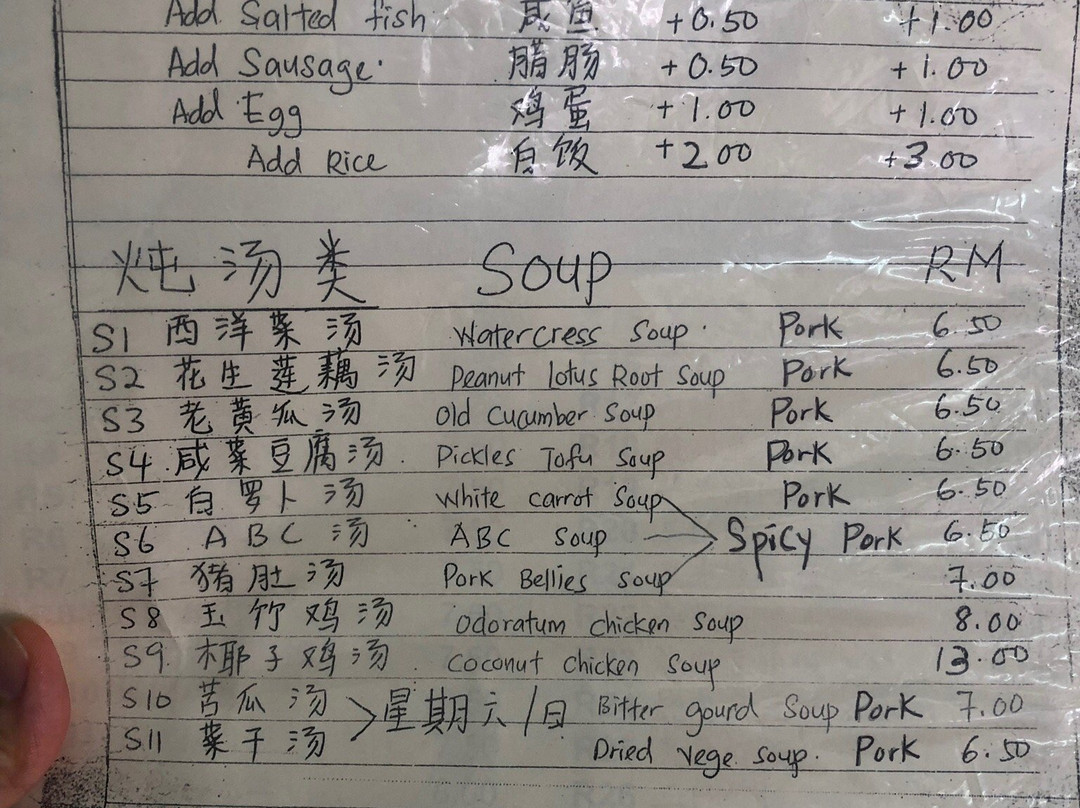 Add Salted fish 咸鱼 +0.50 +1.00
Add Sausage. 腊肠 +0.50 +1.00
Add Egg 鸡蛋 +1.00 +1.00
Add Rice 白饭 +2.00 +3.00
炖汤类 Soup RM
S1 西洋菜汤 Watercress Soup. Pork 6.50
S2 花生莲藕汤 Peanut lotus Root Soup Pork 6.50
S3 老黄瓜汤 Old Cucumber Soup Pork 6.50
S4 咸菜豆腐汤 Pickles Tofu Soup Pork 6.50
S5 白罗卜汤 White carrot Soup Pork 6.50
S6 ABC汤 ABC Soup Spicy Pork 6.50
S7 猪肚汤 Pork Bellies Soup 7.00
S8 玉竹鸡汤 Odoratum chicken Soup 8.00
S9 椰子鸡汤 Coconut chicken Soup 13.00
S10 苦瓜汤 星期六/日 Bitter gourd Soup Pork 7.00
S11 菜干汤 Dried vege soup. Pork 6.50